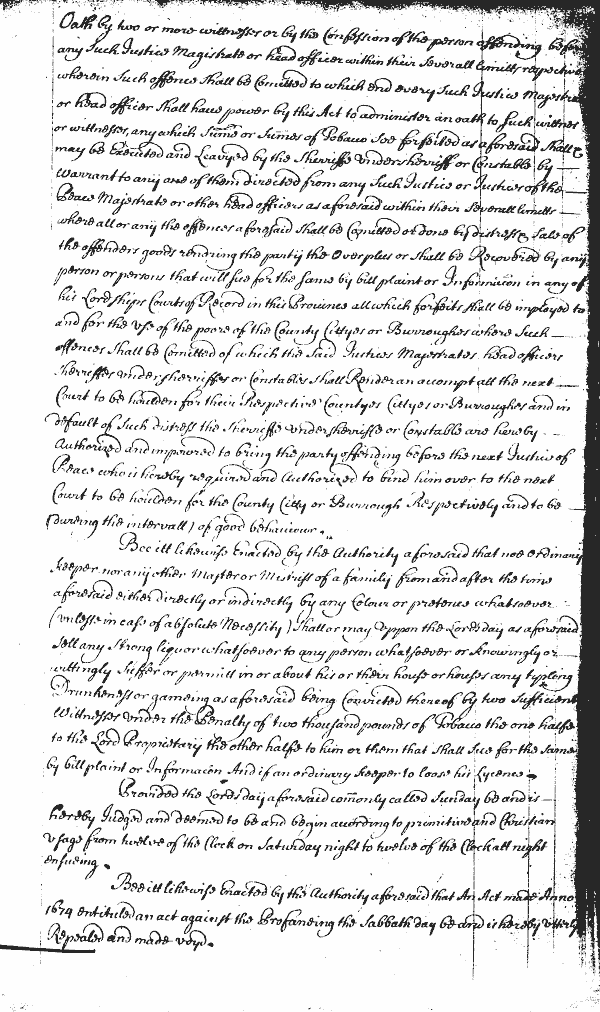 Oath by two or more wittnesses or by the Confession of the person offending before
any Such Justice Magistrate or head officer within their Severall limitts respective
wherein Such offence Shall be Comitted to which end every Such Justice Majestrate
or head officer Shall haue power by this Act to administer an oath to Such wittnes
or wittnesses, any which Sume or Sumes of Tobaco Soe forfeited as aforesaid Shall &
may be Executed and Leavyed by the Sherriffe vndersherriff or Constable by
Warrant to any one of them directed from any Such Justice or Justices of the
Peace Majestrate or other head officers as aforesaid within their Severall limitts
where all or any the offences aforesaid Shall be Comitted or done by distress & Sale of
the offenders goods rendring the party the Overplus or Shall be Recovered by any
person or persons that will Sue for the Same by bill plaint or Informacon in any of
his Lordships Courts of Record in this Province all which forfeits Shall be imployed to
and for the vse of the poore of the County Cittyes or Burroughes where Such
offences Shall be Comitted of which the Said Justices Majestrates head officers
Sherriffes vndersherriffes or Constables Shall Render an accompt att the next
Court to be houlden for their Respective Countyes Cittyes or Burroughes and in
default of Such distress the Sherriffe vndersherriffe or Constable are hereby
Authorized and impowred to bring the party offending before the next Justice of
Peace who is hereby required and Authorized to bind him over to the next
Court to be houlden for the County Citty or Burrough Respectively and to be
(dureing the intervall) of good behaviour.
Bee itt likewise Enacted by the Authority aforesaid that noe Ordinary
Keeper nor any other Master or Mistriss of a family from and after the time
aforesaid either directly or indirectly by any Colour or pretence whatsoever
(vnlesse in case of absolute Necessity) Shall or may vppon the Lords day as aforesaid
Sell any Strong liquor whatsoever to any person whatsoever or Knowingly or
wittingly Suffer or permitt in or about his or their house or houses any tipling
Drunkeness or gameing as aforesaid being Convicted thereof by two Sufficient
Wittnesses vnder the Penalty of two thousand pounds of Tobaco the one halfe
to the Lord Proprietary the other halfe to him or them that Shall Sue for the Same
by bill plaint or Informacon And if an ordinary Keeper to loose his Lycence
Provided the Lords day aforesaid comonly called Sunday be and is
hereby Judged and deemed to be and begin according to primitive and Christian
vsage from twelve of the Clock on Satturday night to twelve of the Clock att night
ensueing.
Bee itt likewise Enacted by the Authority aforesaid that An Act made Anno
1674 entituled an act against the Profaneing the Sabbath day be and is hereby vtterly
Repealed and made voyd.